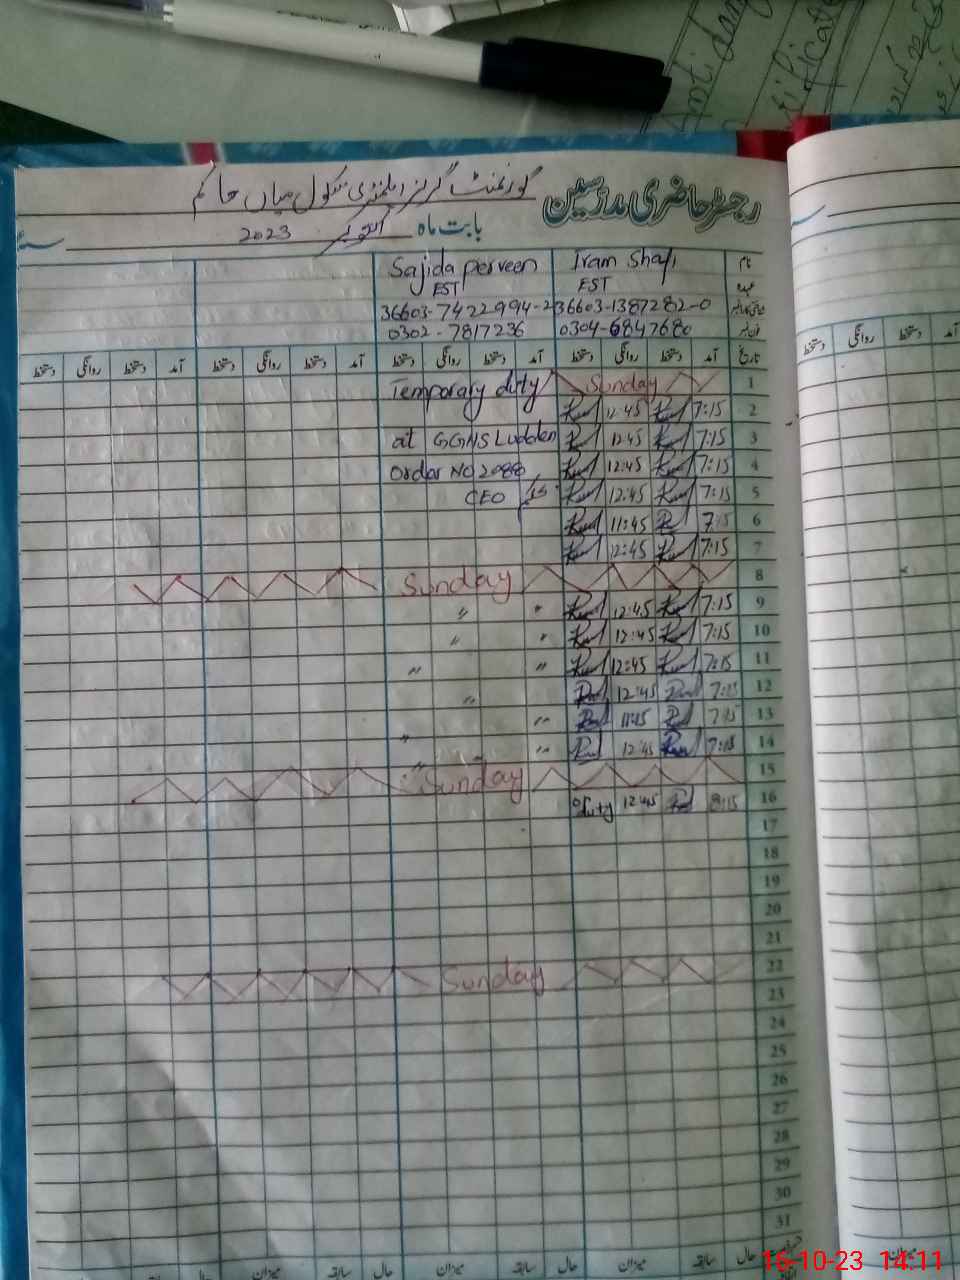 Anti dan
tificate
رجسٹر حاضری مدرسین گورنمنٹ گرلز ایلمنٹری سکول میاں حاکم
بابت ماہ اکتوبر 2023
نام Iram Shafi Sajida Perveen
عہدہ EST EST
36603-1387282-0 36603-7422994-2
فون نمبر 0304-6847680 0302-7817236
تاریخ آمد دستخط روانگی دستخط آمد دستخط روانگی دستخط آمد دستخط روانگی دستخط آمد دستخط روانگی دستخط
1 Sunday Temporary duty
2 7:15 12:45
3 7:15 12:45 at GGHS Ludden
4 7:15 12:45 Order NO 2088
5 7:15 12:45 CEO
6 7:15 11:45
7 7:15 12:45
8 Sunday
9 7:15 12:45 " "
10 7:15 12:45 " "
11 7:15 12:45 " "
12 7:15 12:45 "
13 7:15 11:45 "
14 7:15 12:45 " "
15 Sunday
16 8:15 12:45 duty
17
18
19
20
21
22 Sunday
23
24
25
26
27
28
29
30
31
حال سابقہ میزان حال سابقہ میزان حال سابقہ میزان
16-10-23 14:11